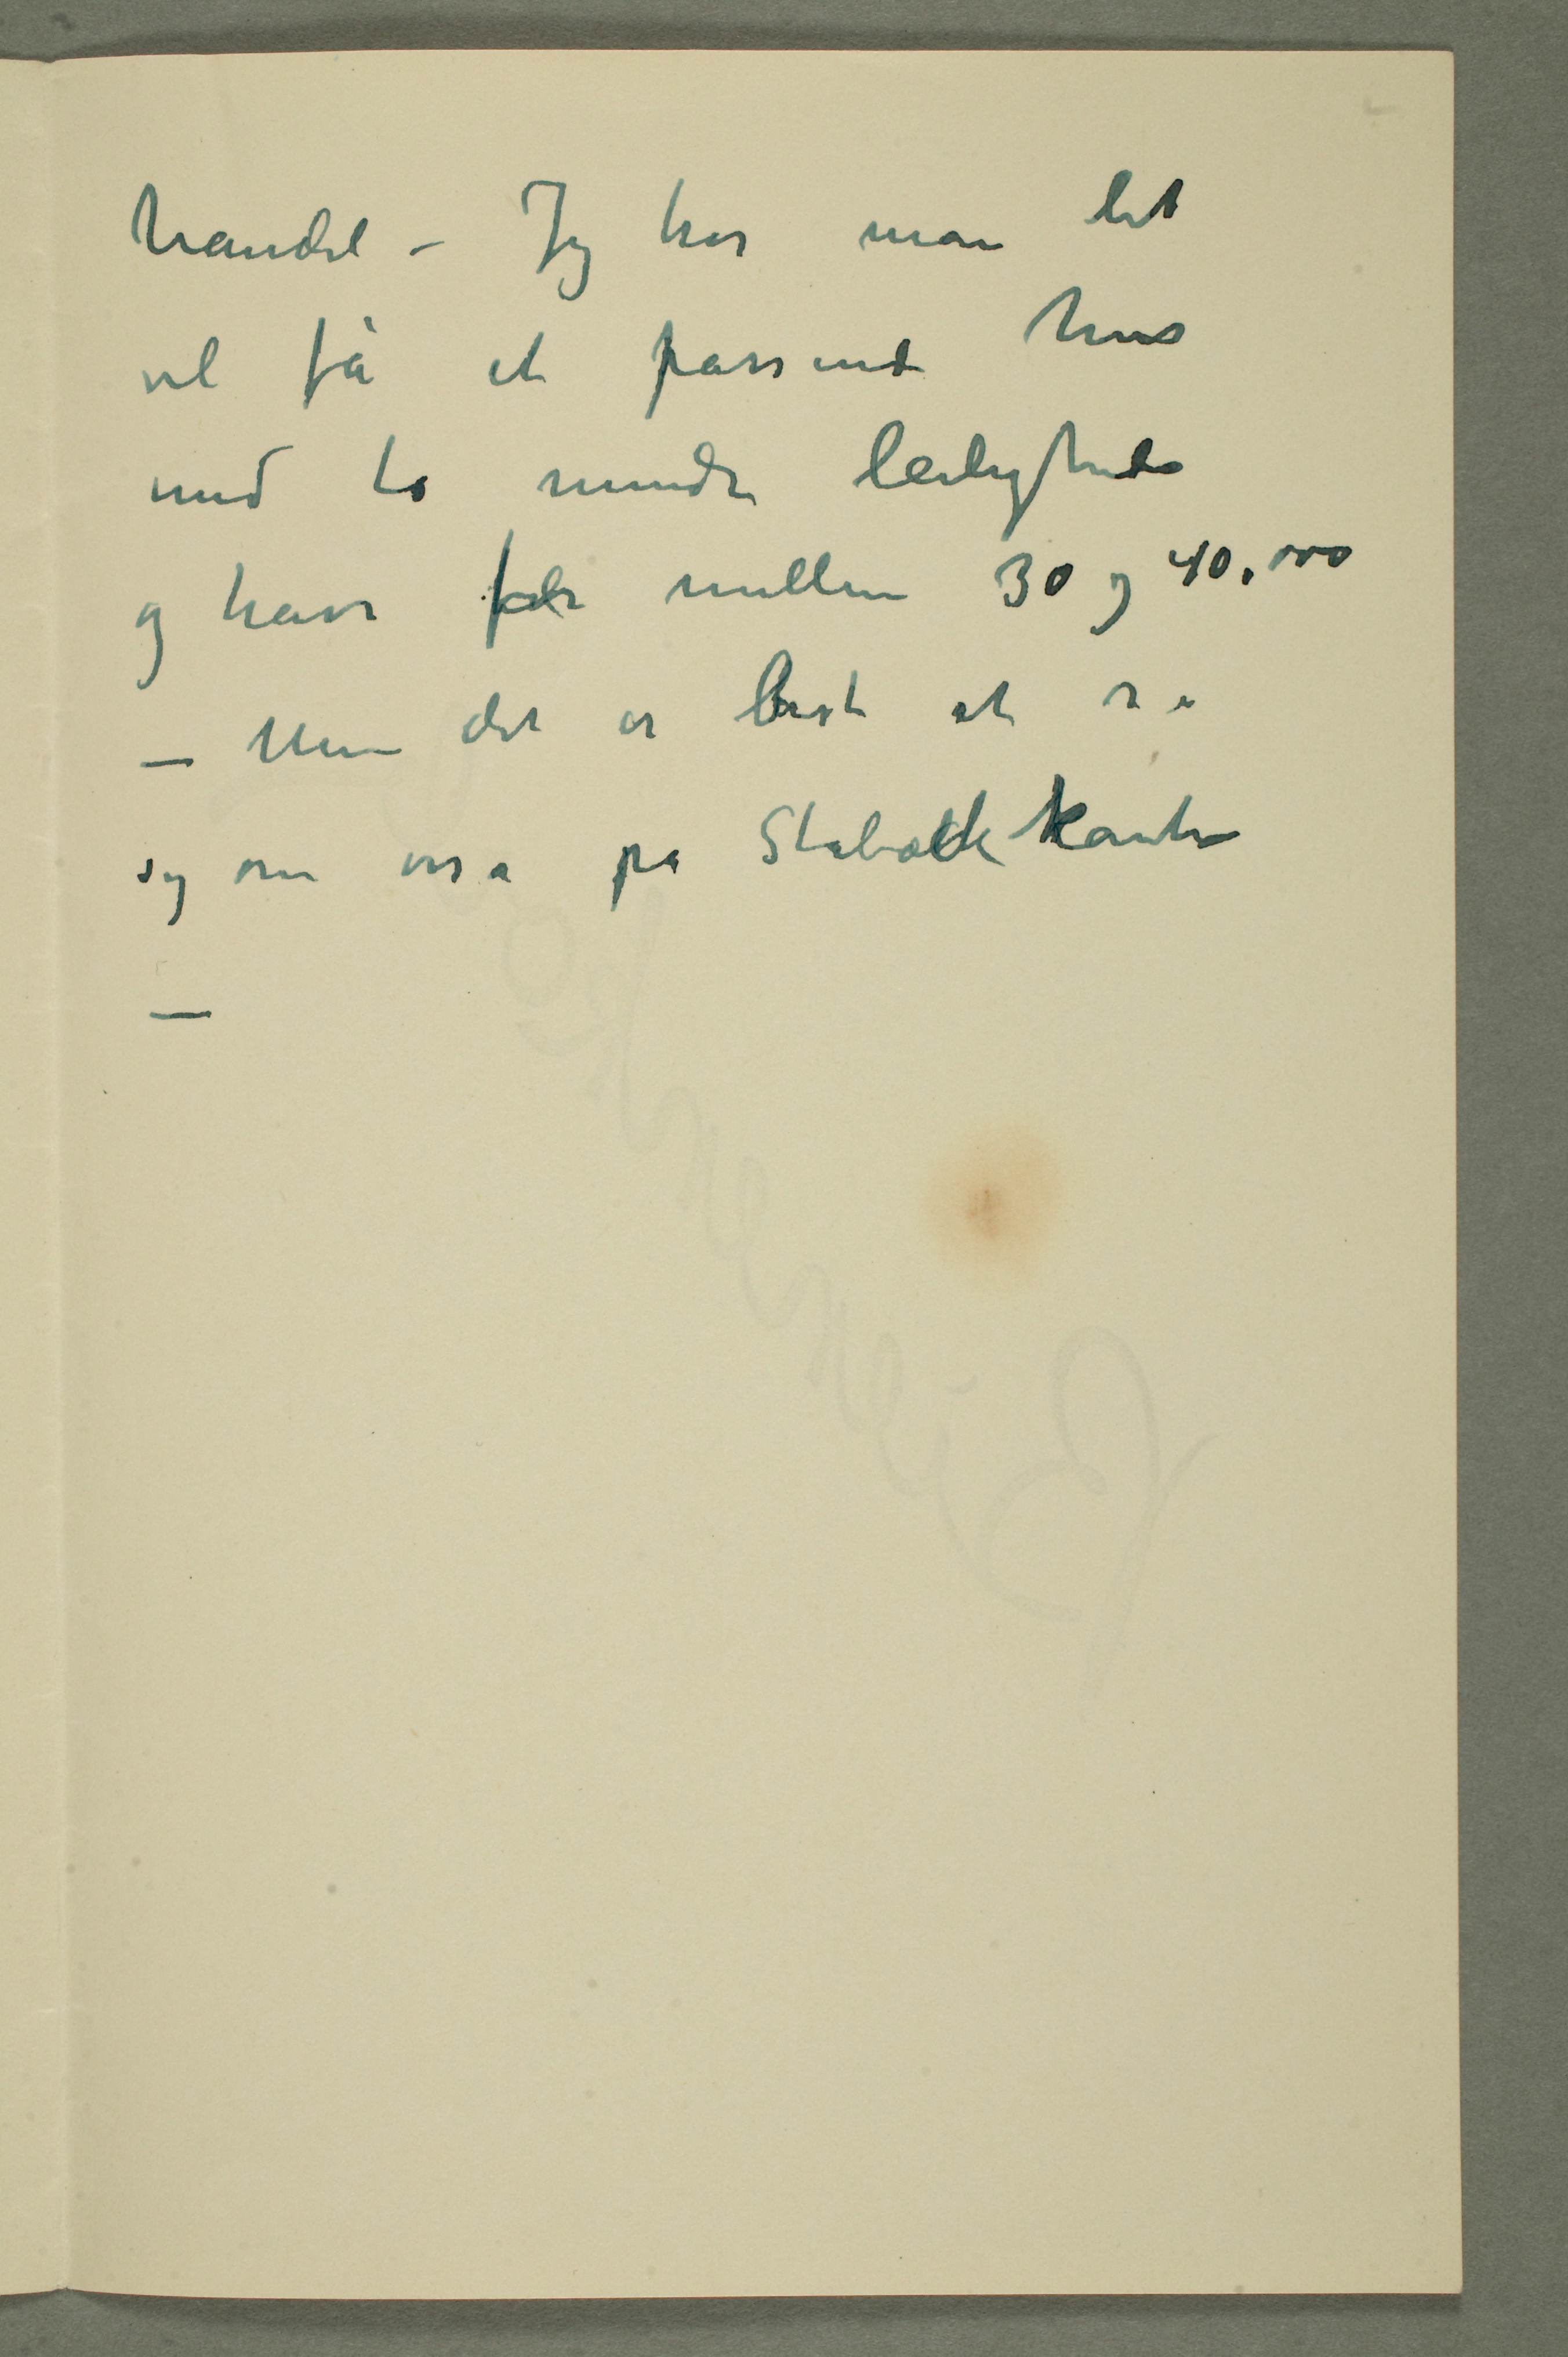 handel – Jeg tror man let
vil få et passende hus
med to mindre leiligheder
og have for mellem 30 og 40.000
– Men det er best at se
sig om også på Stabækkanten
–